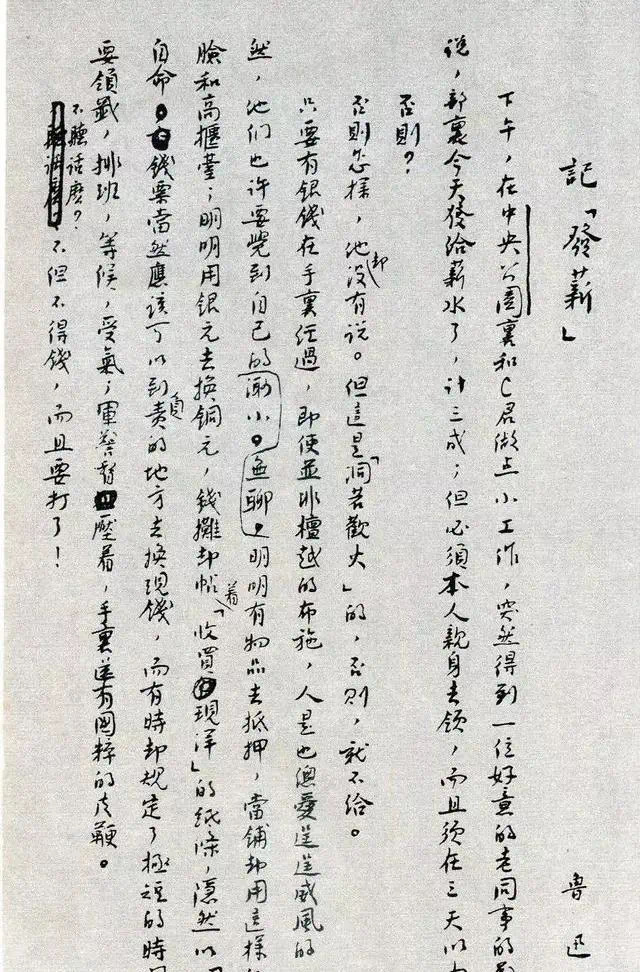 記「發薪」
魯迅
下午，在中央公園裏和C君做点小工作，突然得到一位好意的老同事的
说，部裏今天發给薪水了，计三成；但必須本人親身去领，而且须在三天以
否則？
否則怎樣，他却没有说。但這是「洞若觀火」的，否則，就不给。
只要有银錢在手裏经過，即使並非檀越的布施，人是也總愛逞逞威風的
然，他们也许要覺到自己的渺小。無聊。明明有物品去抵押，當铺却用這樣
臉和高櫃臺；明明用银元去换铜元，錢攤却帖着「收買现洋」的纸條，隱然以
自命。錢票當然應該可以到負責的地方去换现錢，而有時却规定了極短的時
要领籤，排班，等候，受氣；軍警督壓着，手裏還有國粹的皮鞭。
不聽話麽？不但不得錢，而且要打了！